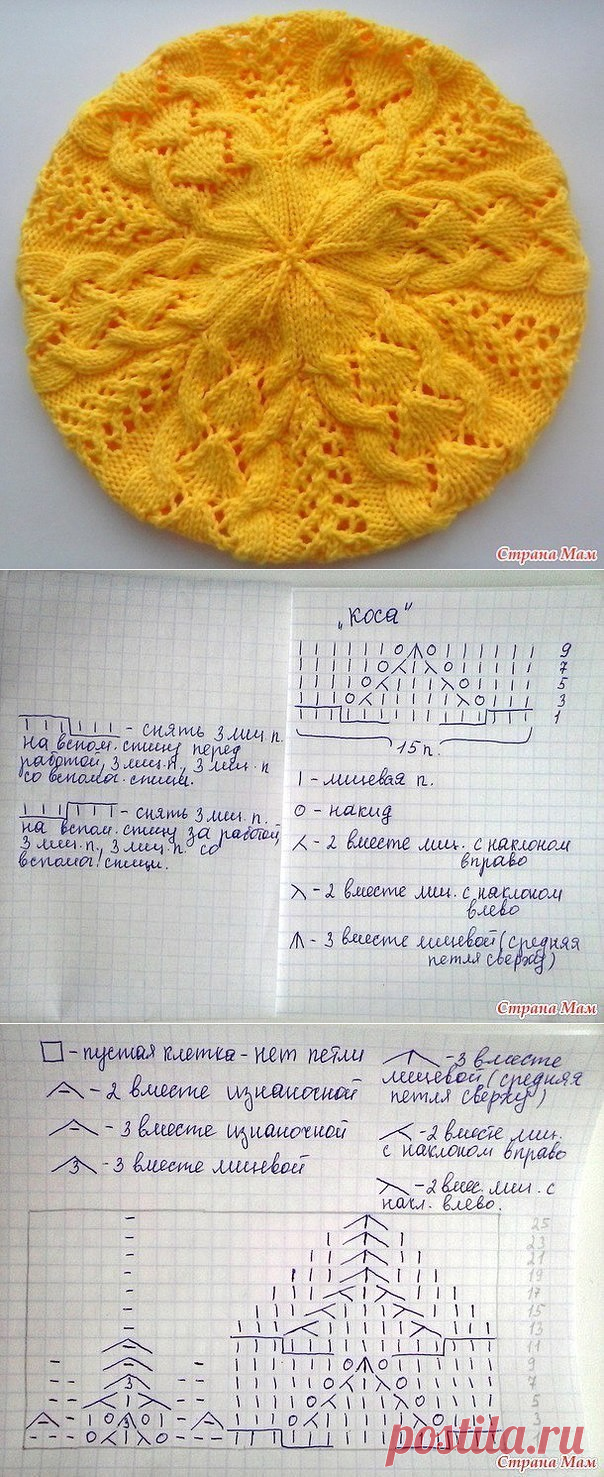 Страна Мам
„коса"
9
7
5
3
1
15 п.
– снять 3 лиц. п.
на вспом. спицу перед
работой, 3 лиц. п., 3 лиц. п
со вспомог. спицы.
– снять 3 лиц. п.
на вспом. спицу за работой,
3 лиц. п., 3 лиц. п. со
вспомог. спицы.
| – лицевая п.
О – накид
– 2 вместе лиц. с наклоном
вправо
– 2 вместе лиц. с наклоном
влево
– 3 вместе лицевой (средняя
петля сверху)
Страна Мам
– пустая клетка – нет петли
– 2 вместе изнаночной
– 3 вместе изнаночной
3 – 3 вместе лицевой
– 3 вместе
лицевой (средняя
петля сверху)
– 2 вместе лиц.
с наклоном вправо
– 2 вмес. лиц. с
накл. влево.
25
23
21
19
17
15
13
11
9
7
5
3
1
postila.ru
Страна Мам